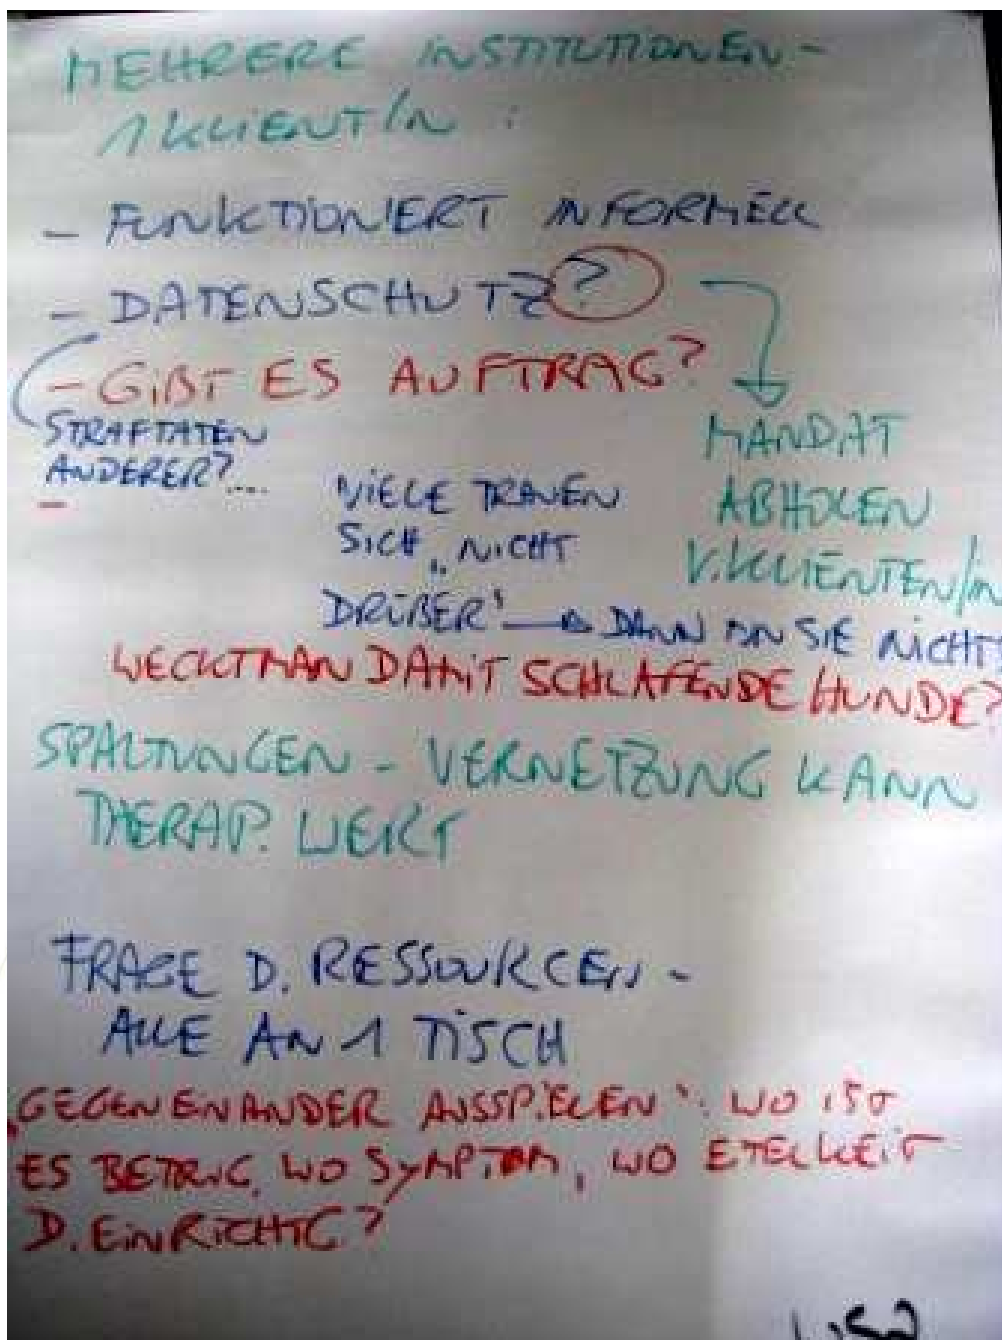 MEHRERE INSTITUTIONEN -
1 KLIENT/IN :
- FUNKTIONIERT INFORMELL
- DATENSCHUTZ?
- GIBT ES AUFTRAG?
STRAFTATEN
ANDERER?....
MANDAT
ABHOLEN
V. KLIENTEN/IN
VIELE TRAUEN
SICH „NICHT
DRÜBER" → DANN AN SIE NICHT
WECKT MAN DAMIT SCHLAFENDE HUNDE?
SPALTUNGEN - VERNETZUNG KANN
THERAP. WERT
FRAGE D. RESSOURCEN -
ALLE AN 1 TISCH
„GEGENEINANDER AUSSPIELEN": WO IST
ES BETRUG, WO SYMPTOM, WO EITELKEIT
D. EINRICHTG?